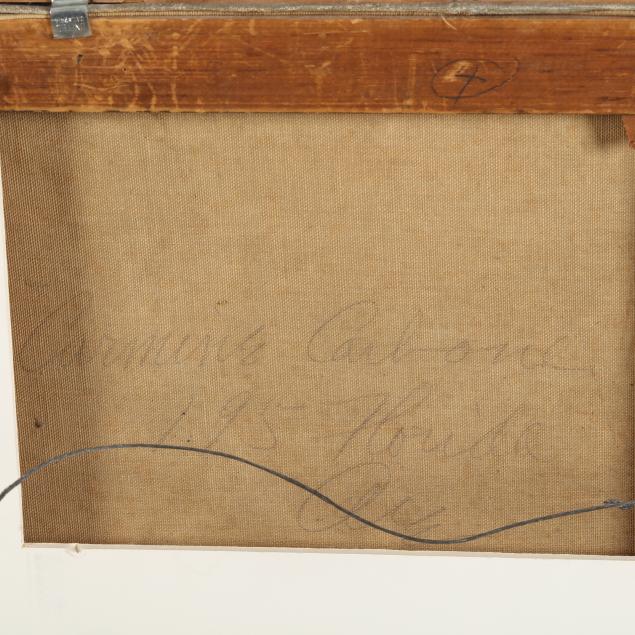 4
Carmine Carbone
195 Florida
Ave